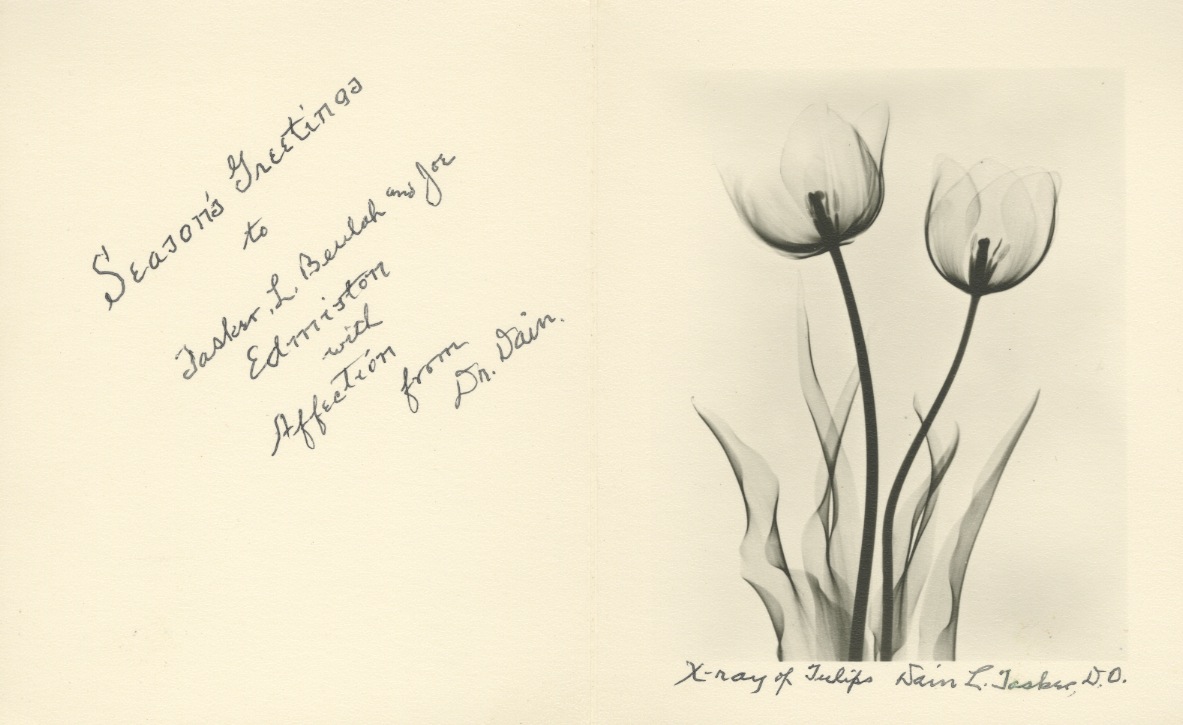 Season's Greetings
to
Tasker, L. Beulah and Joe
Edmiston
with
Affection
from
Dr. Dain.
X-ray of Tulips Dain L. Tasker, D.O.